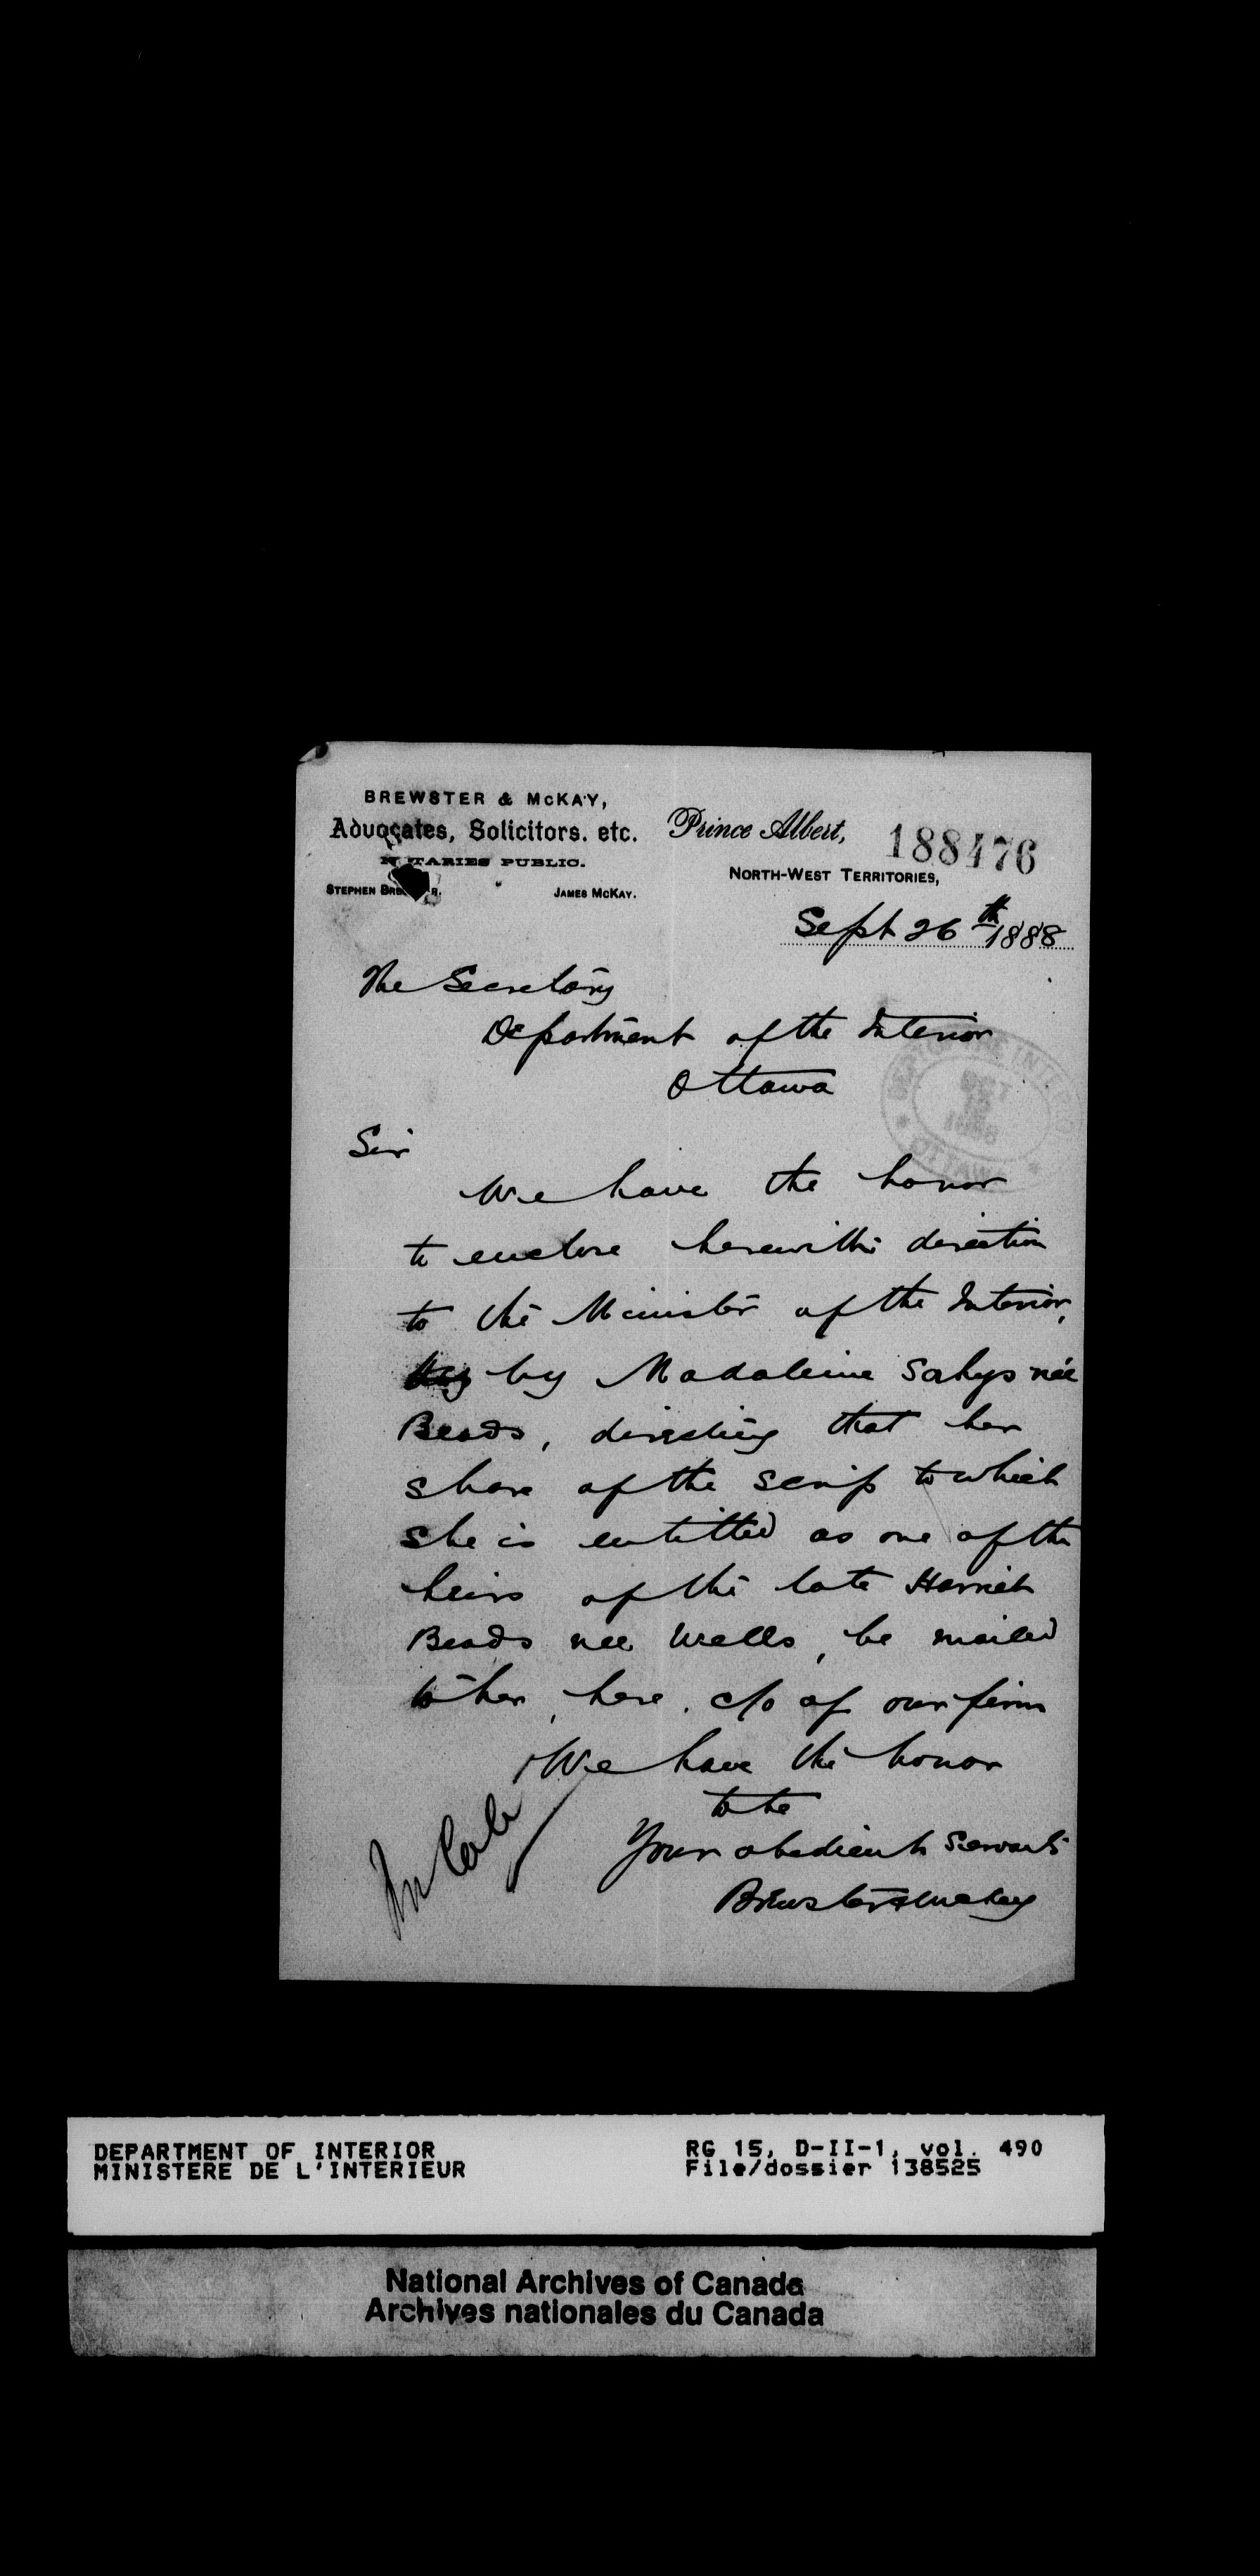 BREWSTER & McKAY,
Advocates, Solicitors. etc.
NOTARIES PUBLIC.
STEPHEN BREWSTER. JAMES McKAY.
Prince Albert,
188476
NORTH-WEST TERRITORIES,
Sept 26th 1888
The Secretary
Department of the Interior
Ottawa
DEPT OF THE INTERIOR
OCT
1888
OTTAWA
Sir
We have the honor
to enclose herewith direction
to the Minister of the Interior,
by Madaleine Sahys née
Beads, directing that her
share of the scrip to which
she is entitled as one of the
heirs of the late Harriet
Beads nee Wells, be mailed
to her, here, c/o of our firm
We have the honor
to be
Your obedient Servants
Brewster & McKay
DEPARTMENT OF INTERIOR
MINISTERE DE L'INTERIEUR
RG 15, D-II-1, vol. 490
File/dossier 138525
National Archives of Canada
Archives nationales du Canada